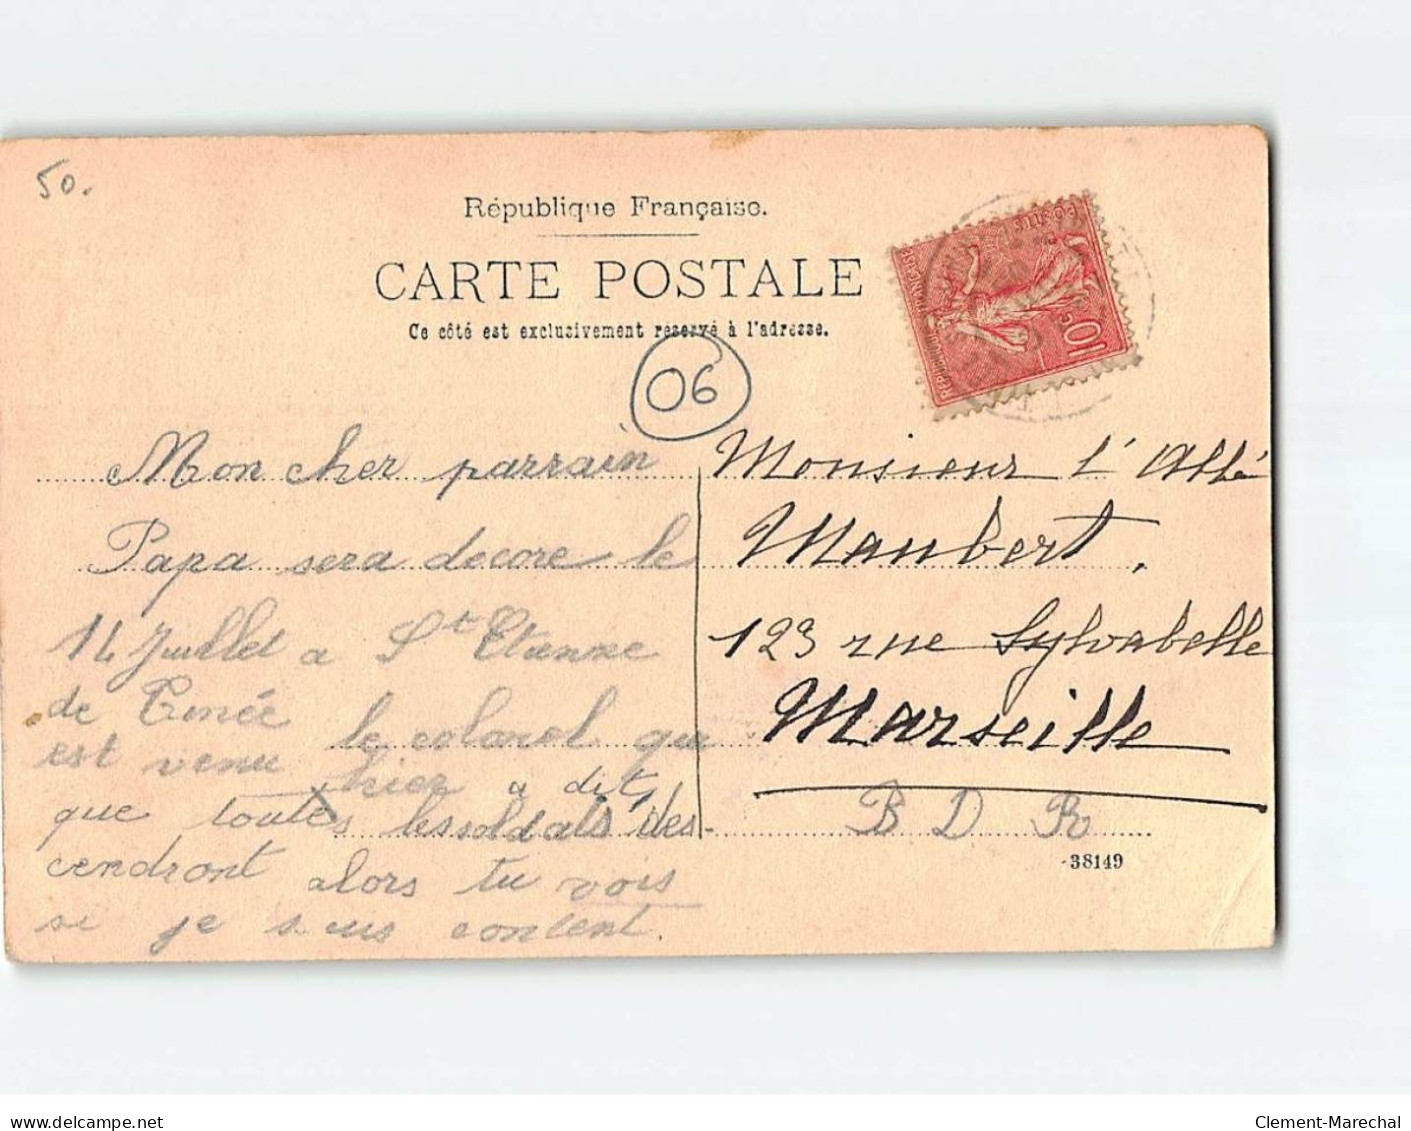 50.
République Française.
CARTE POSTALE
Ce côté est exclusivement réservé à l'adresse.
POSTES
10c
06
Mon cher parrain
Papa sera decore le
14 Juillet a St Etienne
de Tinée le colonel qui
est venu hier a dit,
que toutes les soldats des-
cendront alors tu vois
si je suis content.
Monsieur l'Abbé
Maubert,
123 rue Sylvabelle
Marseille
B D R
38149
delcampe.net
Clement-Marechal